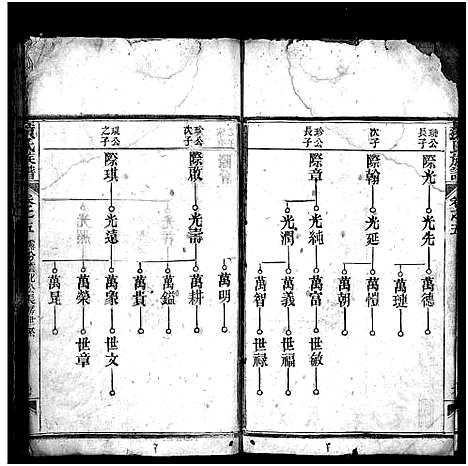 長子
際光
光先
萬德
萬璉
次子
際翰
光延
萬愷
萬朝
珍公
長子
際章
光純
萬富
世敏
萬義
世福
光潤
萬智
世禄
萬明
珍公
次子
際啟
光壽
萬耕
萬鎰
萬貴
琨公
之子
際琪
光遠
萬象
世文
萬榮
世章
萬昆
氏族譜
卷之五